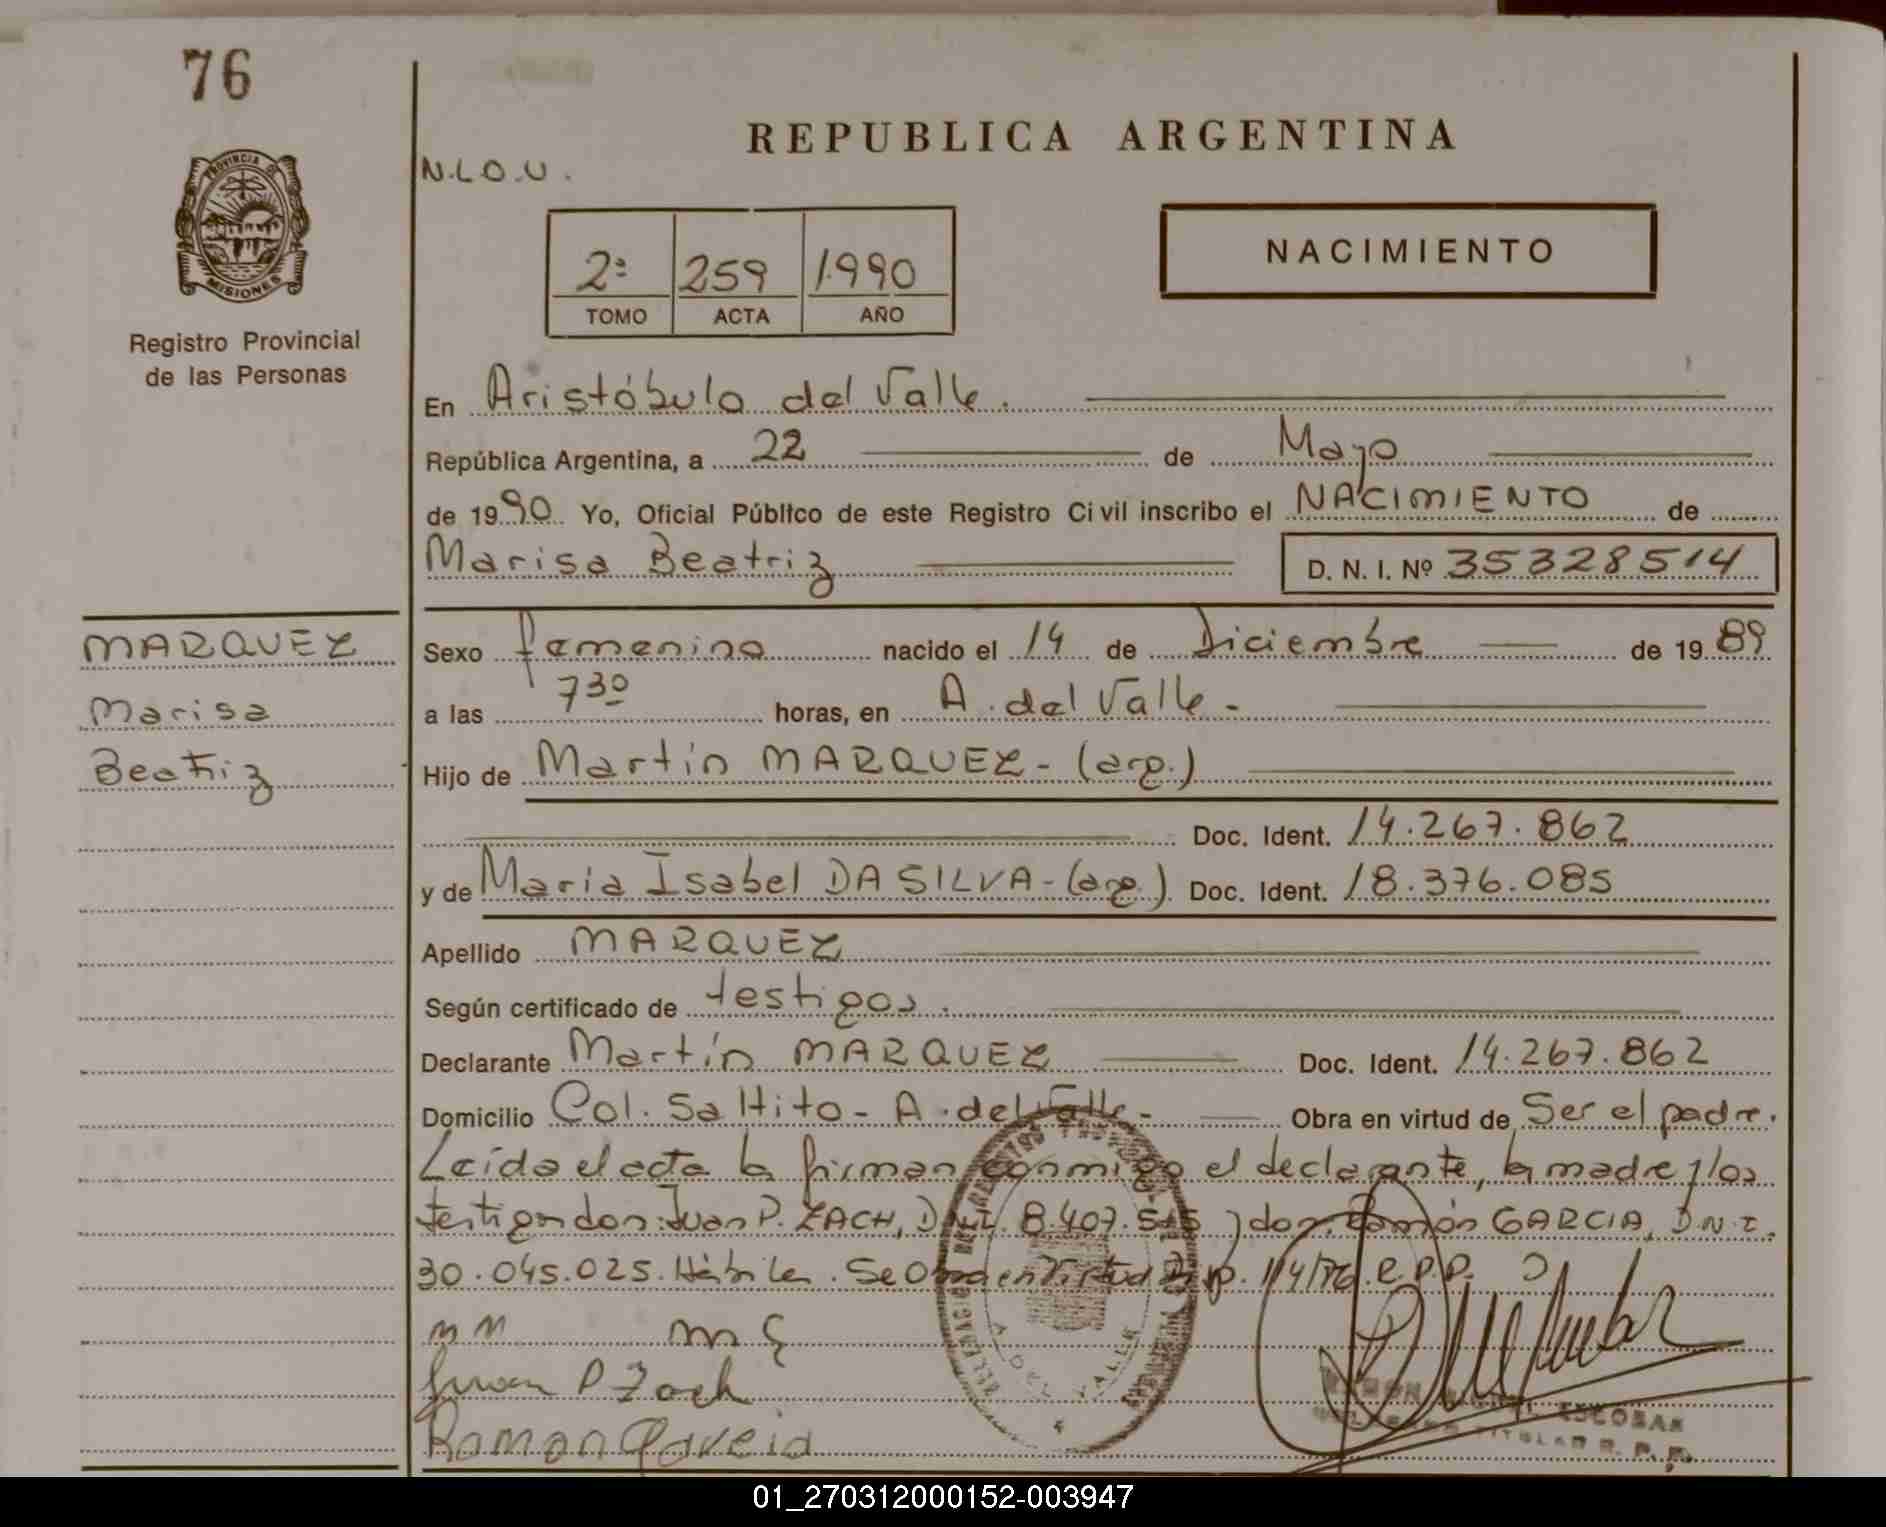 76
REPUBLICA ARGENTINA
N.L.O.U.
PROVINCIA DE
MISIONES
Registro Provincial
de las Personas
2ª 259 1990
TOMO ACTA AÑO
NACIMIENTO
En Aristóbulo del Valle.
República Argentina, a 22 de Mayo
de 1990 Yo, Oficial Público de este Registro Civil inscribo el NACIMIENTO de
Marisa Beatriz D. N. I. Nº 35328514
MARQUEZ
Marisa
Beatriz
Sexo femenino nacido el 14 de Diciembre de 1989
a las 730 horas, en A. del Valle -
Hijo de Martín MARQUEZ - (arg.)
Doc. Ident. 14.267.862
y de Maria Isabel DA SILVA - (arg.) Doc. Ident. 18.376.085
Apellido MARQUEZ
Según certificado de testigos.
Declarante Martín MARQUEZ Doc. Ident. 14.267.862
Domicilio Col. Saltito - A. del Valle - Obra en virtud de Ser el padre.
Leída el acta la firman conmigo el declarante, la madre y los
testigos don: Juan P. ZACH, D.N.I. 8.407. y don: Ramón GARCIA, D.N.I.
30.045.025. Hábiles. Se Obra en Virtud Disp. 114/76. R.P.P.
M M m
Juan P Zach
Ramon
A. DEL VALLE
ESCOBAR
TITULAR R. P. P.
01_270312000152-003947